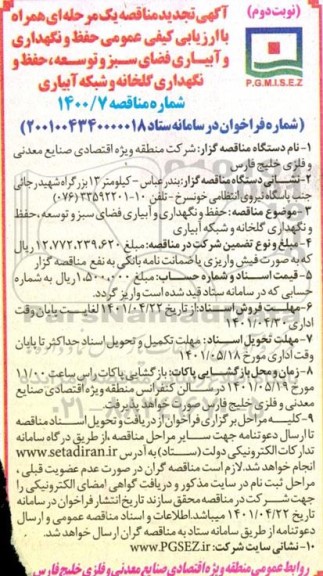 (نوبت دوم)
آگهی تجدید مناقصه یک مرحله ای همراه
با ارزیابی کیفی عمومی حفظ و نگهداری
و آبیاری فضای سبز و توسعه، حفظ و
نگهداری گلخانه و شبکه آبیاری
P.G.M.I.S.E.Z
شماره مناقصه ۱۴۰۰/۷
(شماره فراخوان در سامانه ستاد ۲۰۰۱۰۰۴۳۴۰۰۰۰۰۱۸)
۱- نام دستگاه مناقصه گزار: شرکت منطقه ویژه اقتصادی صنایع معدنی
و فلزی خلیج فارس
۲- نشانی دستگاه مناقصه گزار: بندرعباس - کیلومتر ۱۳ بزرگراه شهید رجائی
جنب پاسگاه نیروی انتظامی خونسرخ - تلفن ۱۰-۳۳۵۹۲۲۰۱ (۰۷۶)
۳- موضوع مناقصه: حفظ و نگهداری و آبیاری فضای سبز و توسعه، حفظ
و نگهداری گلخانه و شبکه آبیاری
۴- مبلغ و نوع تضمین شرکت در مناقصه: مبلغ ۱۲.۷۷۲.۲۳۹.۶۲۰ ریال
که به صورت فیش واریزی یا ضمانت نامه بانکی به نفع مناقصه گزار
۵- قیمت اسناد و شماره حساب: مبلغ ۱.۵۰۰.۰۰۰ ریال به شماره
حسابی که در سامانه ستاد قید شده است واریز گردد.
۶- مهلت فروش اسناد: از تاریخ ۱۴۰۱/۰۴/۲۲ لغایت پایان وقت
اداری ۱۴۰۱/۰۴/۳۰
۷- مهلت تحویل اسناد: مهلت تکمیل و تحویل اسناد حداکثر تا پایان
وقت اداری مورخ ۱۴۰۱/۰۵/۱۸
۸- زمان و محل بازگشایی پاکات: بازگشایی پاکات راس ساعت ۱۱/۰۰
مورخ ۱۴۰۱/۰۵/۱۹ در سالن کنفرانس منطقه ویژه اقتصادی صنایع
معدنی و فلزی خلیج فارس صورت خواهد پذیرفت
۹- کلیه مراحل برگزاری فراخوان از دریافت و تحویل اسناد مناقصه
تا ارسال دعوتنامه جهت سایر مراحل مناقصه، از طریق درگاه سامانه
تدارکات الکترونیکی دولت (ستاد) به آدرس www.setadiran.ir
انجام خواهد شد. لازم است مناقصه گران در صورت عدم عضویت قبلی،
مراحل ثبت نام در سایت مذکور و دریافت گواهی امضای الکترونیکی را
جهت شرکت در مناقصه محقق سازند تاریخ انتشار فراخوان در سامانه
تاریخ ۱۴۰۱/۰۴/۲۲ میباشد. اطلاعات و اسناد مناقصه عمومی و ارسال
دعوتنامه از طریق سامانه ستاد به مناقصه گران ارسال خواهد شد.
۱۰- نشانی سایت شرکت: www.PGSEZ.ir
روابط عمومی منطقه ویژه اقتصادی صنایع معدنی و فلزی خلیج فارس